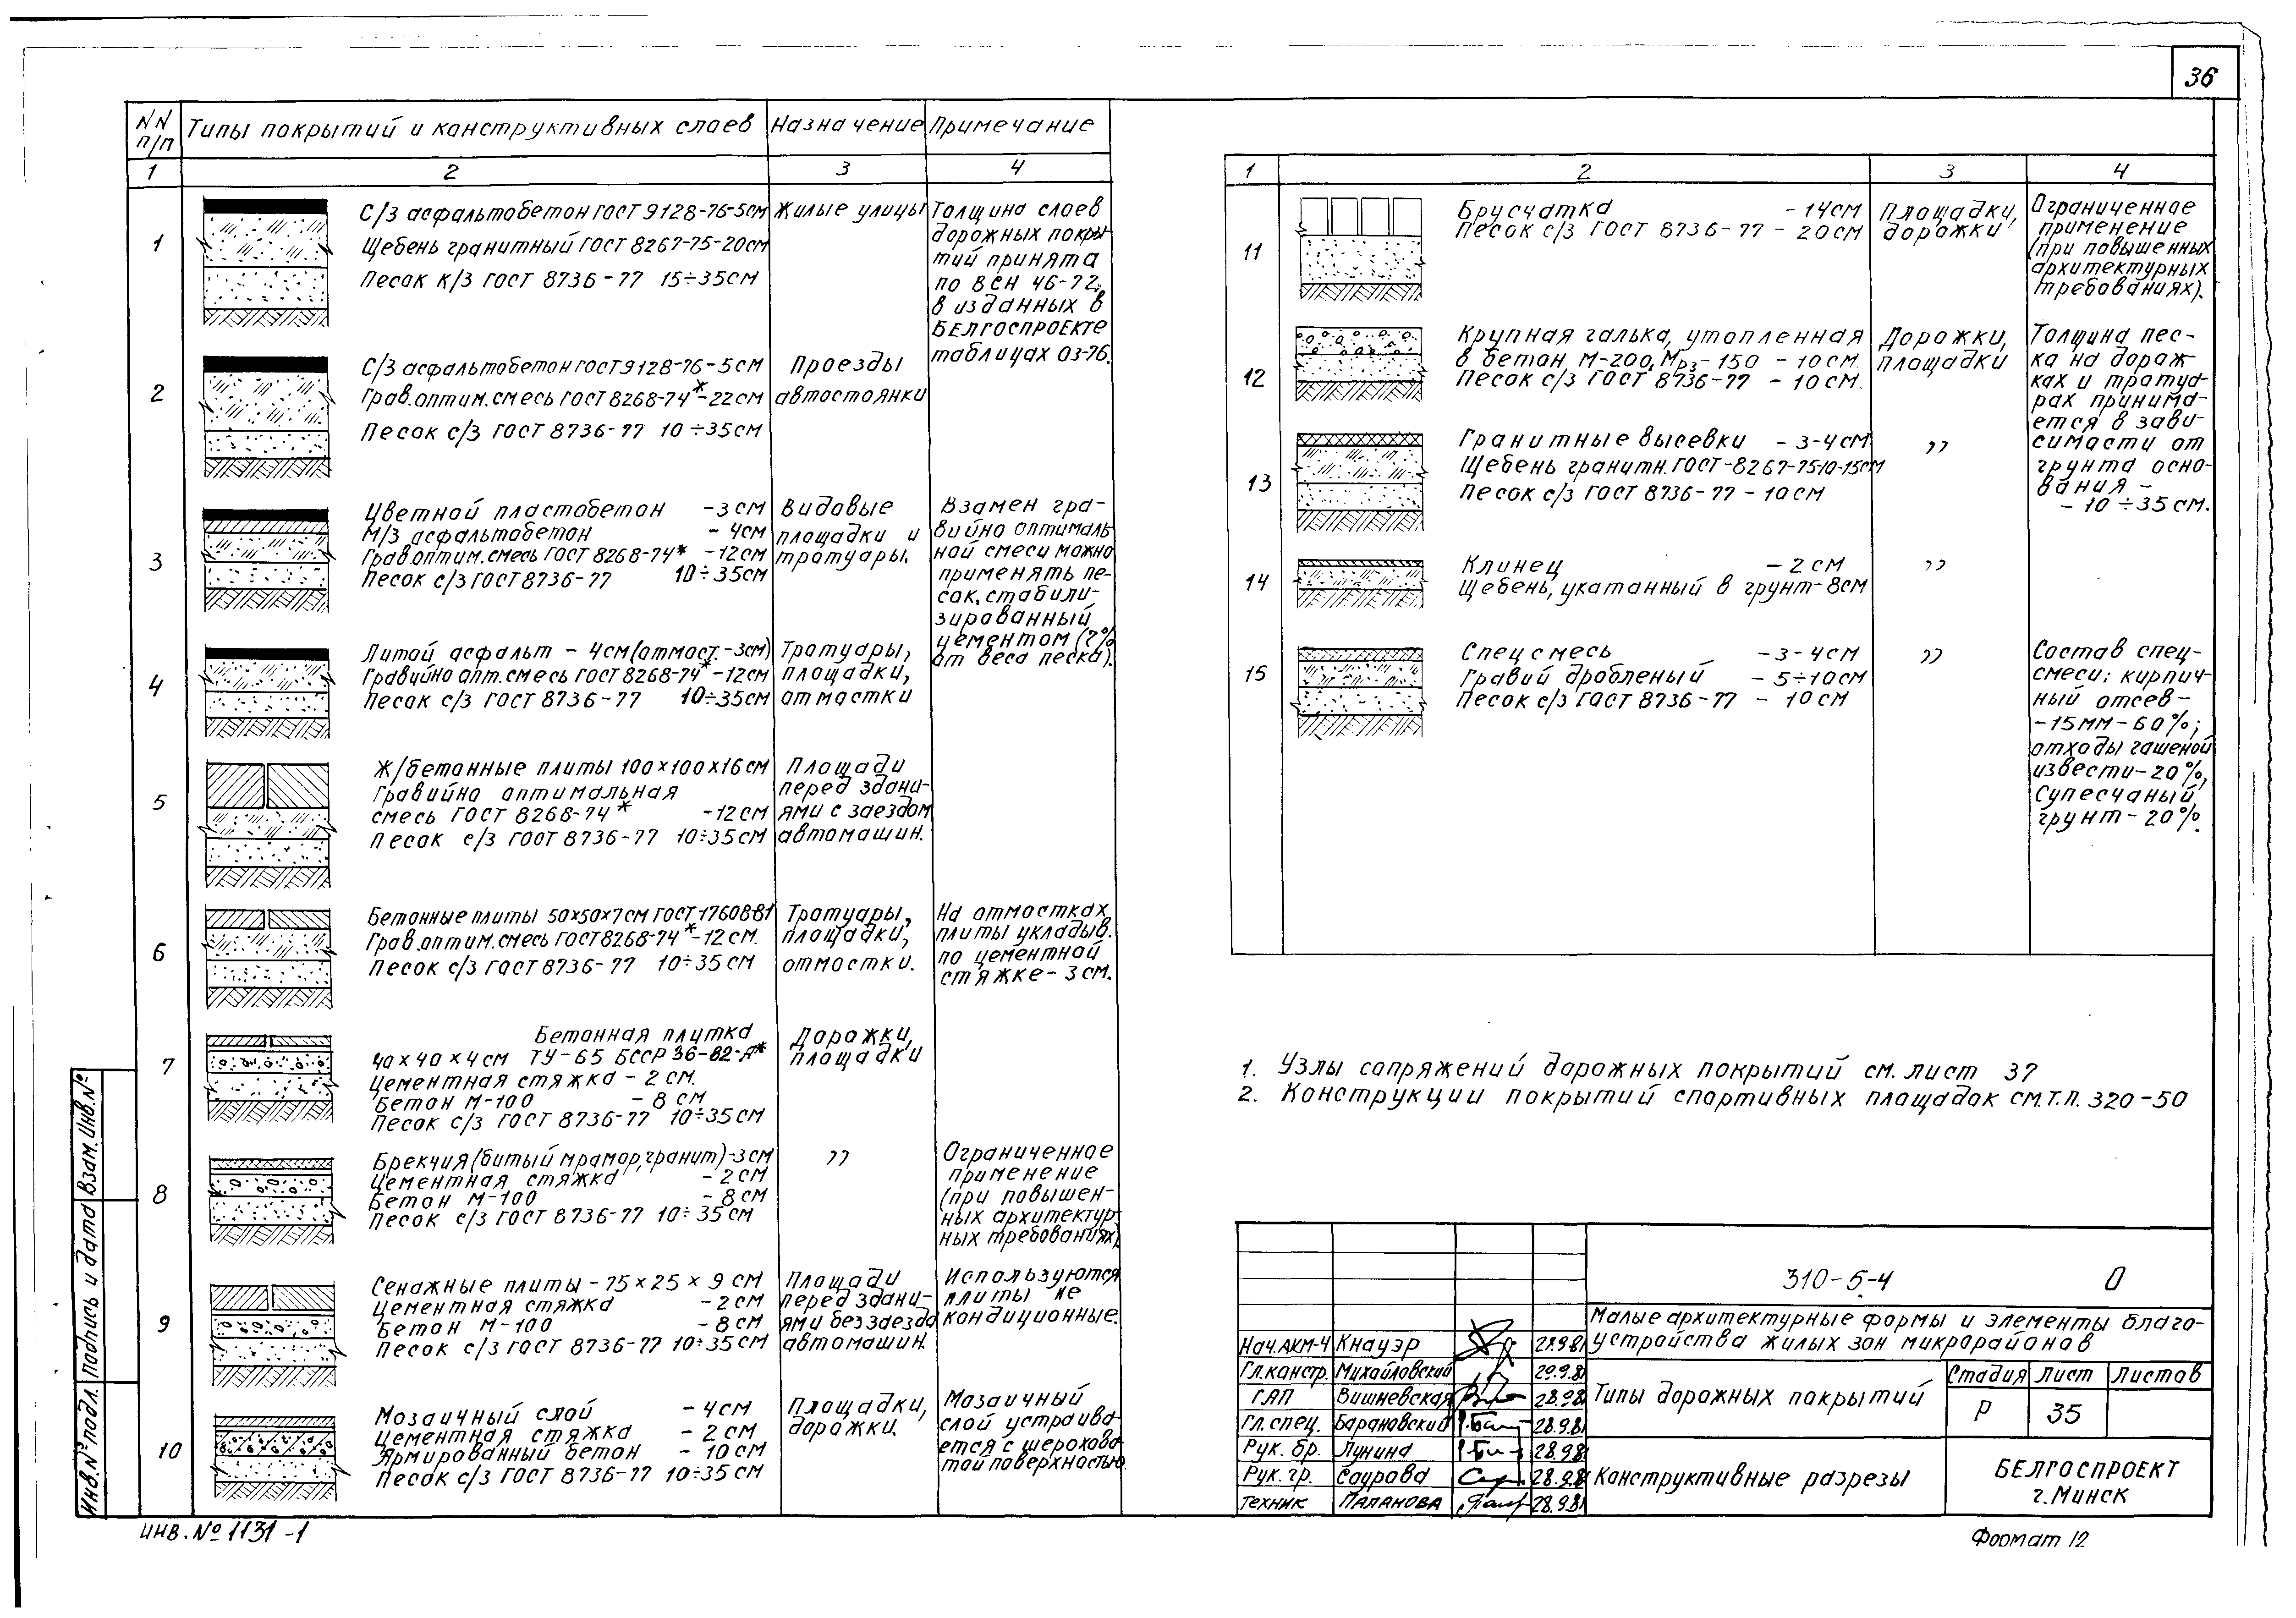 36
NN п/п
Типы покрытий и конструктивных слоев
Назначение
Примечание
1 2 3 4
1
С/з асфальтобетон ГОСТ 9128-76-5см
Щебень гранитный ГОСТ 8267-75-20см
Песок к/з ГОСТ 8736-77 15÷35см
Жилые улицы
Толщина слоев
дорожных покры-
тий принята
по ВСН 46-72,
в изданных в
БЕЛГОСПРОЕКТЕ
таблицах 03-76.
2
С/з асфальтобетон ГОСТ 9128-76-5см
Грав.оптим.смесь ГОСТ 8268-74*-22см
Песок с/з ГОСТ 8736-77 10÷35см
Проезды
автостоянки
3
Цветной пластобетон -3см
М/з асфальтобетон - 4см
Грав.оптим.смесь ГОСТ 8268-74* -12см
Песок с/з ГОСТ 8736-77 10÷35см
Видовые
площадки и
тротуары.
Взамен гра-
вийно оптималь
ной смеси можно
применять пе-
сок, стабили-
зированный
цементом (7%
от веса песка).
4
Литой асфальт - 4см (отмост.-3см)
Гравийно опт.смесь ГОСТ 8268-74*-12см
Песок с/з ГОСТ 8736-77 10÷35см
Тротуары,
площадки,
отмостки
5
Ж/бетонные плиты 100×100×16см
Гравийно оптимальная
смесь ГОСТ 8268-74* -12см
Песок с/з ГОСТ 8736-77 10÷35см
Площади
перед здани-
ями с заездом
автомашин.
6
Бетонные плиты 50×50×7см ГОСТ 17608-81
Грав.оптим.смесь ГОСТ 8268-74*-12см.
Песок с/з ГОСТ 8736-77 10÷35см
Тротуары,
площадки,
отмостки.
На отмостках
плиты укладыв.
по цементной
стяжке-3см.
7
Бетонная плитка
40×40×4см ТУ-65 БССР 36-82-А*
Цементная стяжка - 2см.
Бетон М-100 - 8см
Песок с/з ГОСТ 8736-77 10÷35см
Дорожки,
площадки
8
Брекчия (битый мрамор, гранит)-3см
Цементная стяжка - 2см
Бетон М-100 - 8см
Песок с/з ГОСТ 8736-77 10÷35см
"
Ограниченное
применение
(при повышен-
ных архитектур-
ных требованиях)
9
Сенажные плиты - 75×25×9см
Цементная стяжка -2см
Бетон М-100 -8см
Песок с/з ГОСТ 8736-77 10÷35см
Площади
перед здани-
ями без заезда
автомашин.
Используются
плиты не
кондиционные.
10
Мозаичный слой - 4см
Цементная стяжка - 2см
Армированный бетон - 10см
Песок с/з ГОСТ 8736-77 10÷35см
Площадки,
дорожки.
Мозаичный
слой устраива-
ется с шерохова-
той поверхностью.
1 2 3 4
11
Брусчатка - 14см
Песок с/з ГОСТ 8736-77 - 20см
Площадки,
дорожки
Ограниченное
применение
(при повышенных
архитектурных
требованиях).
12
Крупная галька, утопленная
в бетон М-200, Мрз-150 - 10см.
Песок с/з ГОСТ 8736-77 - 10см.
Дорожки,
площадки
Толщина пес-
ка на дорож-
ках и тротуа-
рах принима-
ется в зави-
симости от
грунта осно-
вания -
- 10÷35см.
13
Гранитные высевки - 3-4см
Щебень гранитн. ГОСТ-8267-75-10-15см
Песок с/з ГОСТ 8736-77 - 10см
"
14
Клинец - 2см
Щебень, укатанный в грунт-8см
"
15
Спецсмесь -3-4см
Гравий дробленый - 5÷10см
Песок с/з ГОСТ 8736-77 - 10см
"
Состав спец-
смеси: кирпич-
ный отсев-
-15мм-60%;
отходы гашеной
извести-20%,
супесчаный
грунт-20%.
1. Узлы сопряжений дорожных покрытий см. лист 37
2. Конструкции покрытий спортивных площадок см.т.п. 320-50
310-5-4 0
Малые архитектурные формы и элементы благо-
устройства жилых зон микрорайонов
Нач.АКМ-4 Кнауэр 29.9.81
Гл.констр. Михайловский 29.9.81
ГАП Вишневская 28.9.81
Гл.спец. Барановский 28.9.81
Рук. бр. Лунина 28.9.81
Рук. гр. Саурова 28.9.81
Техник Папанова 28.9.81
Типы дорожных покрытий
Стадия Лист Листов
Р 35
Конструктивные разрезы
БЕЛГОСПРОЕКТ
г.Минск
Взам.инв.№
Подпись и дата
Инв.№ подл.
инв.№ 1131-1
Формат 12